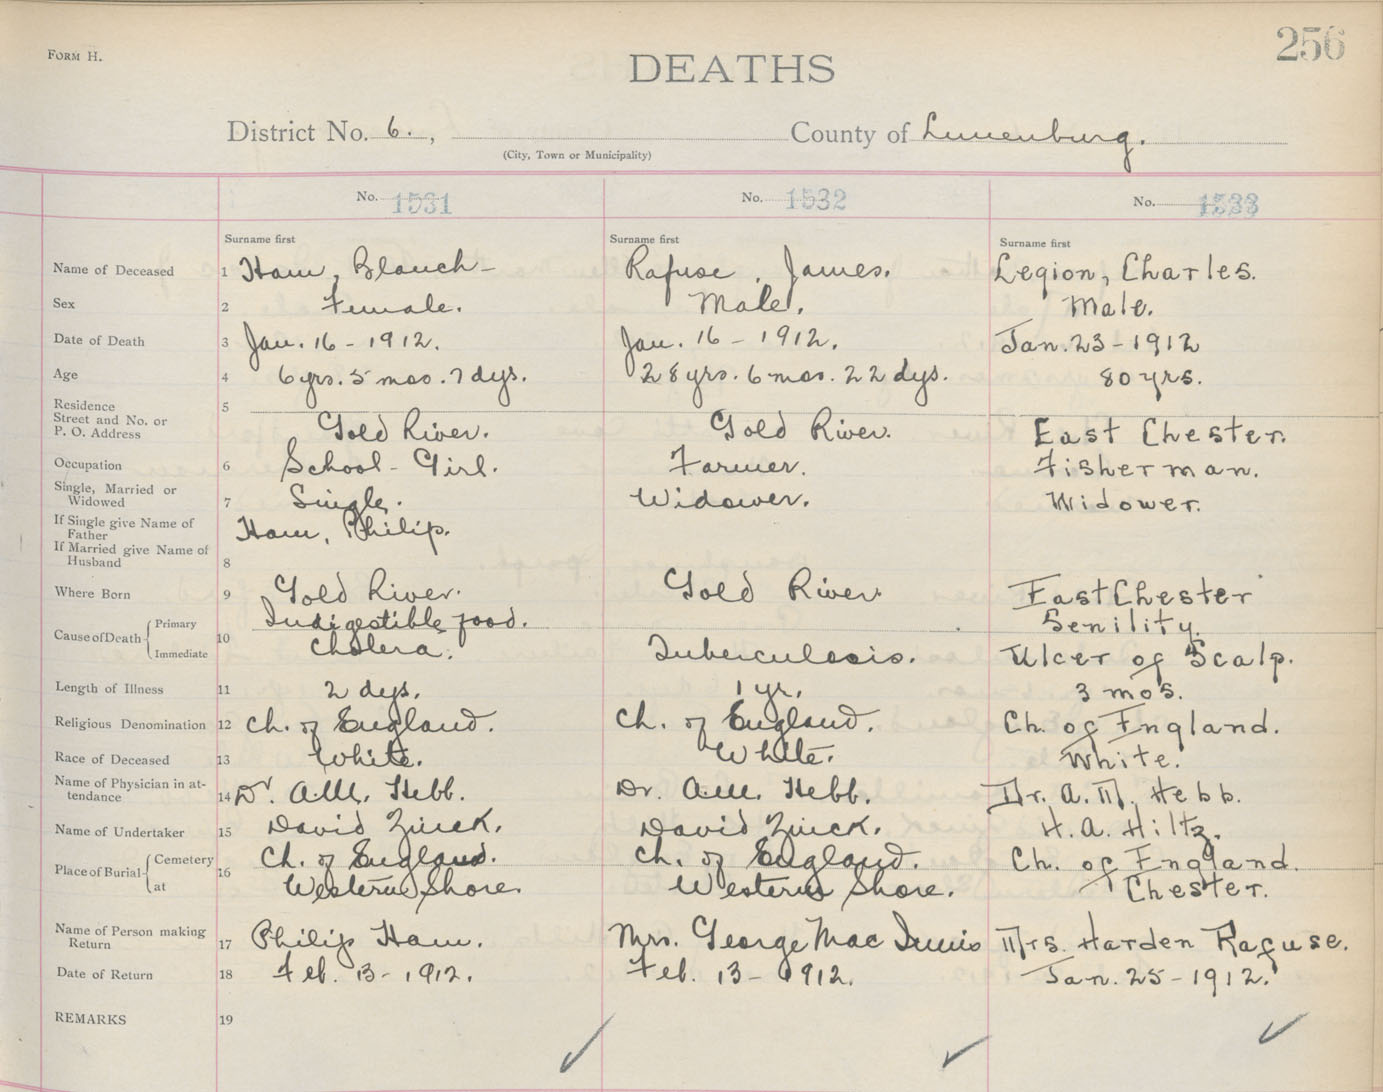 FORM H.
256
DEATHS
District No. 6. , County of Lunenburg.
(City, Town or Municipality)
No. 1531 No. 1532 No. 1533
Surname first Surname first Surname first
Name of Deceased 1 Ham, Blanch- Rafuse, James. Legion, Charles.
Sex 2 Female. Male. Male.
Date of Death 3 Jan. 16 - 1912. Jan. 16 - 1912. Jan. 23 - 1912
Age 4 6 yrs. 5 mos. 7 dys. 28 yrs. 6 mos. 22 dys. 80 yrs.
Residence 5
Street and No. or
P. O. Address Gold River. Gold River. East Chester.
Occupation 6 School-Girl. Farmer. Fisherman.
Single, Married or
Widowed 7 Single. Widower. Widower.
If Single give Name of
Father Ham, Philip.
If Married give Name of
Husband 8
Where Born 9 Gold River. Gold River. East Chester
Cause of Death Primary 10 Indigestible food. Senility.
Immediate Cholera. Tuberculosis. Ulcer of Scalp.
Length of Illness 11 2 dys. 1 yr. 3 mos.
Religious Denomination 12 Ch. of England. Ch. of England. Ch. of England.
Race of Deceased 13 White. White. White.
Name of Physician in at-
tendance 14 Dr. A.M. Hebb. Dr. A.M. Hebb. Dr. A. M. Hebb.
Name of Undertaker 15 David Zinck. David Zinck. H. A. Hiltz.
Place of Burial Cemetery 16 Ch. of England. Ch. of England. Ch. of England.
at Western Shore. Western Shore. Chester.
Name of Person making
Return 17 Philip Ham. Mrs. George Mac Innis Mrs. Harden Rafuse.
Date of Return 18 Feb. 13 - 1912. Feb. 13 - 1912. Jan. 25 - 1912.
REMARKS 19